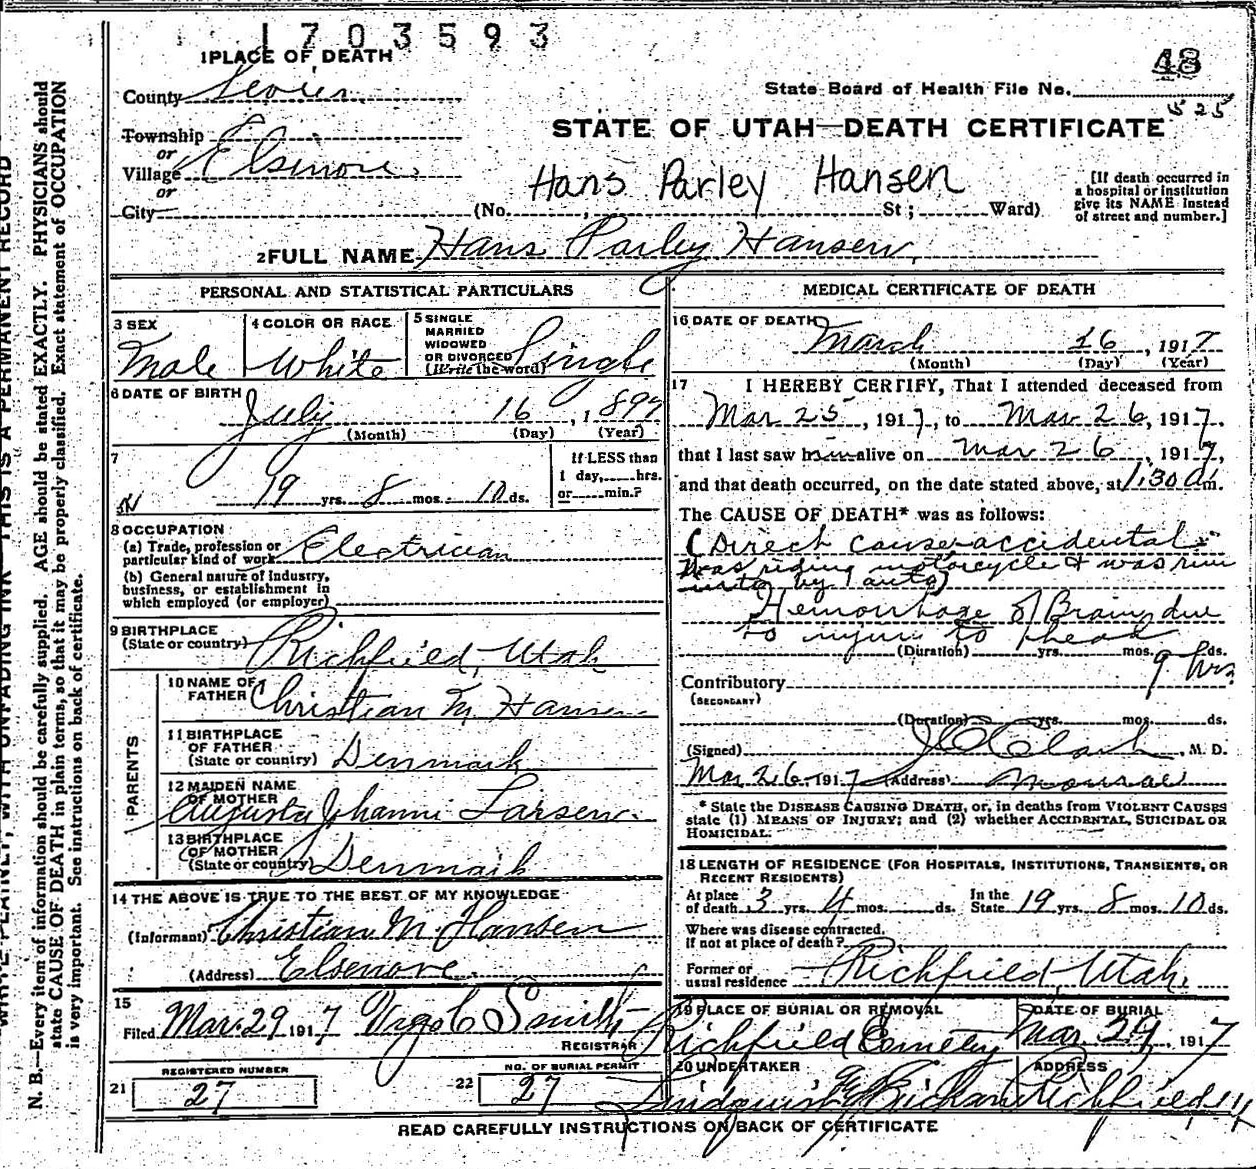 1703593
1 PLACE OF DEATH
48
County Sevier
State Board of Health File No.
525
Township
STATE OF UTAH—DEATH CERTIFICATE
or
Village Elsinore.
or
Hans Parley Hansen
City (No. St; Ward)
[If death occurred in
a hospital or institution
give its NAME instead
of street and number.]
2 FULL NAME Hans Parley Hansen
PERSONAL AND STATISTICAL PARTICULARS
3 SEX
Male
4 COLOR OR RACE
White
5 SINGLE
MARRIED
WIDOWED
OR DIVORCED
(Write the word)
Single
6 DATE OF BIRTH
July 16, 1897
(Month) (Day) (Year)
7
19 yrs. 8 mos. 10 ds.
If LESS than
1 day, hrs.
or min.?
8 OCCUPATION
(a) Trade, profession or
particular kind of work Electrician
(b) General nature of Industry,
business, or establishment in
which employed (or employer)
9 BIRTHPLACE
(State or country) Richfield, Utah
PARENTS
10 NAME OF
FATHER Christian M. Hansen
11 BIRTHPLACE
OF FATHER
(State or country) Denmark
12 MAIDEN NAME
OF MOTHER
Augusta Johanni Larsen.
13 BIRTHPLACE
OF MOTHER
(State or country) Denmark
14 THE ABOVE IS TRUE TO THE BEST OF MY KNOWLEDGE
(Informant) Christian M. Hansen
(Address) Elsenore.
15
Filed Mar. 29 1917 Smith
REGISTRAR
REGISTERED NUMBER
21 27
NO. OF BURIAL PERMIT
22 27
MEDICAL CERTIFICATE OF DEATH
16 DATE OF DEATH
March 26, 1917
(Month) (Day) (Year)
17 I HEREBY CERTIFY, That I attended deceased from
Mar 25, 1917, to Mar 26, 1917.
that I last saw him alive on Mar 26, 1917,
and that death occurred, on the date stated above, at 1:30 a.m.
The CAUSE OF DEATH* was as follows:
(Direct cause accidental
Was riding motorcycle & was run
into by auto)
Hemorrhage of Brain due
to injury to head
(Duration) yrs. mos. ds.
9 hrs.
Contributory
(SECONDARY)
(Duration) yrs. mos. ds.
(Signed) Clark, M. D.
Mar 26 1917 (Address) Monroe
* State the DISEASE CAUSING DEATH, or, in deaths from VIOLENT CAUSES
state (1) MEANS OF INJURY; and (2) whether ACCIDENTAL, SUICIDAL OR
HOMICIDAL.
18 LENGTH OF RESIDENCE (FOR HOSPITALS, INSTITUTIONS, TRANSIENTS, OR
RECENT RESIDENTS)
At place
of death 3 yrs. 4 mos. ds.
In the
State 19 yrs. 8 mos. 10 ds.
Where was disease contracted.
If not at place of death?
Former or
usual residence Richfield, Utah.
19 PLACE OF BURIAL OR REMOVAL
Richfield Cemetery
DATE OF BURIAL
Mar. 29, 1917
20 UNDERTAKER
ADDRESS
Richfield, U
READ CAREFULLY INSTRUCTIONS ON BACK OF CERTIFICATE
THIS IS A PERMANENT RECORD
N. B.—Every item of information should be carefully supplied. AGE should be stated EXACTLY. PHYSICIANS should
state CAUSE OF DEATH in plain terms, so that it may be properly classified. Exact statement of OCCUPATION
is very important. See instructions on back of certificate.